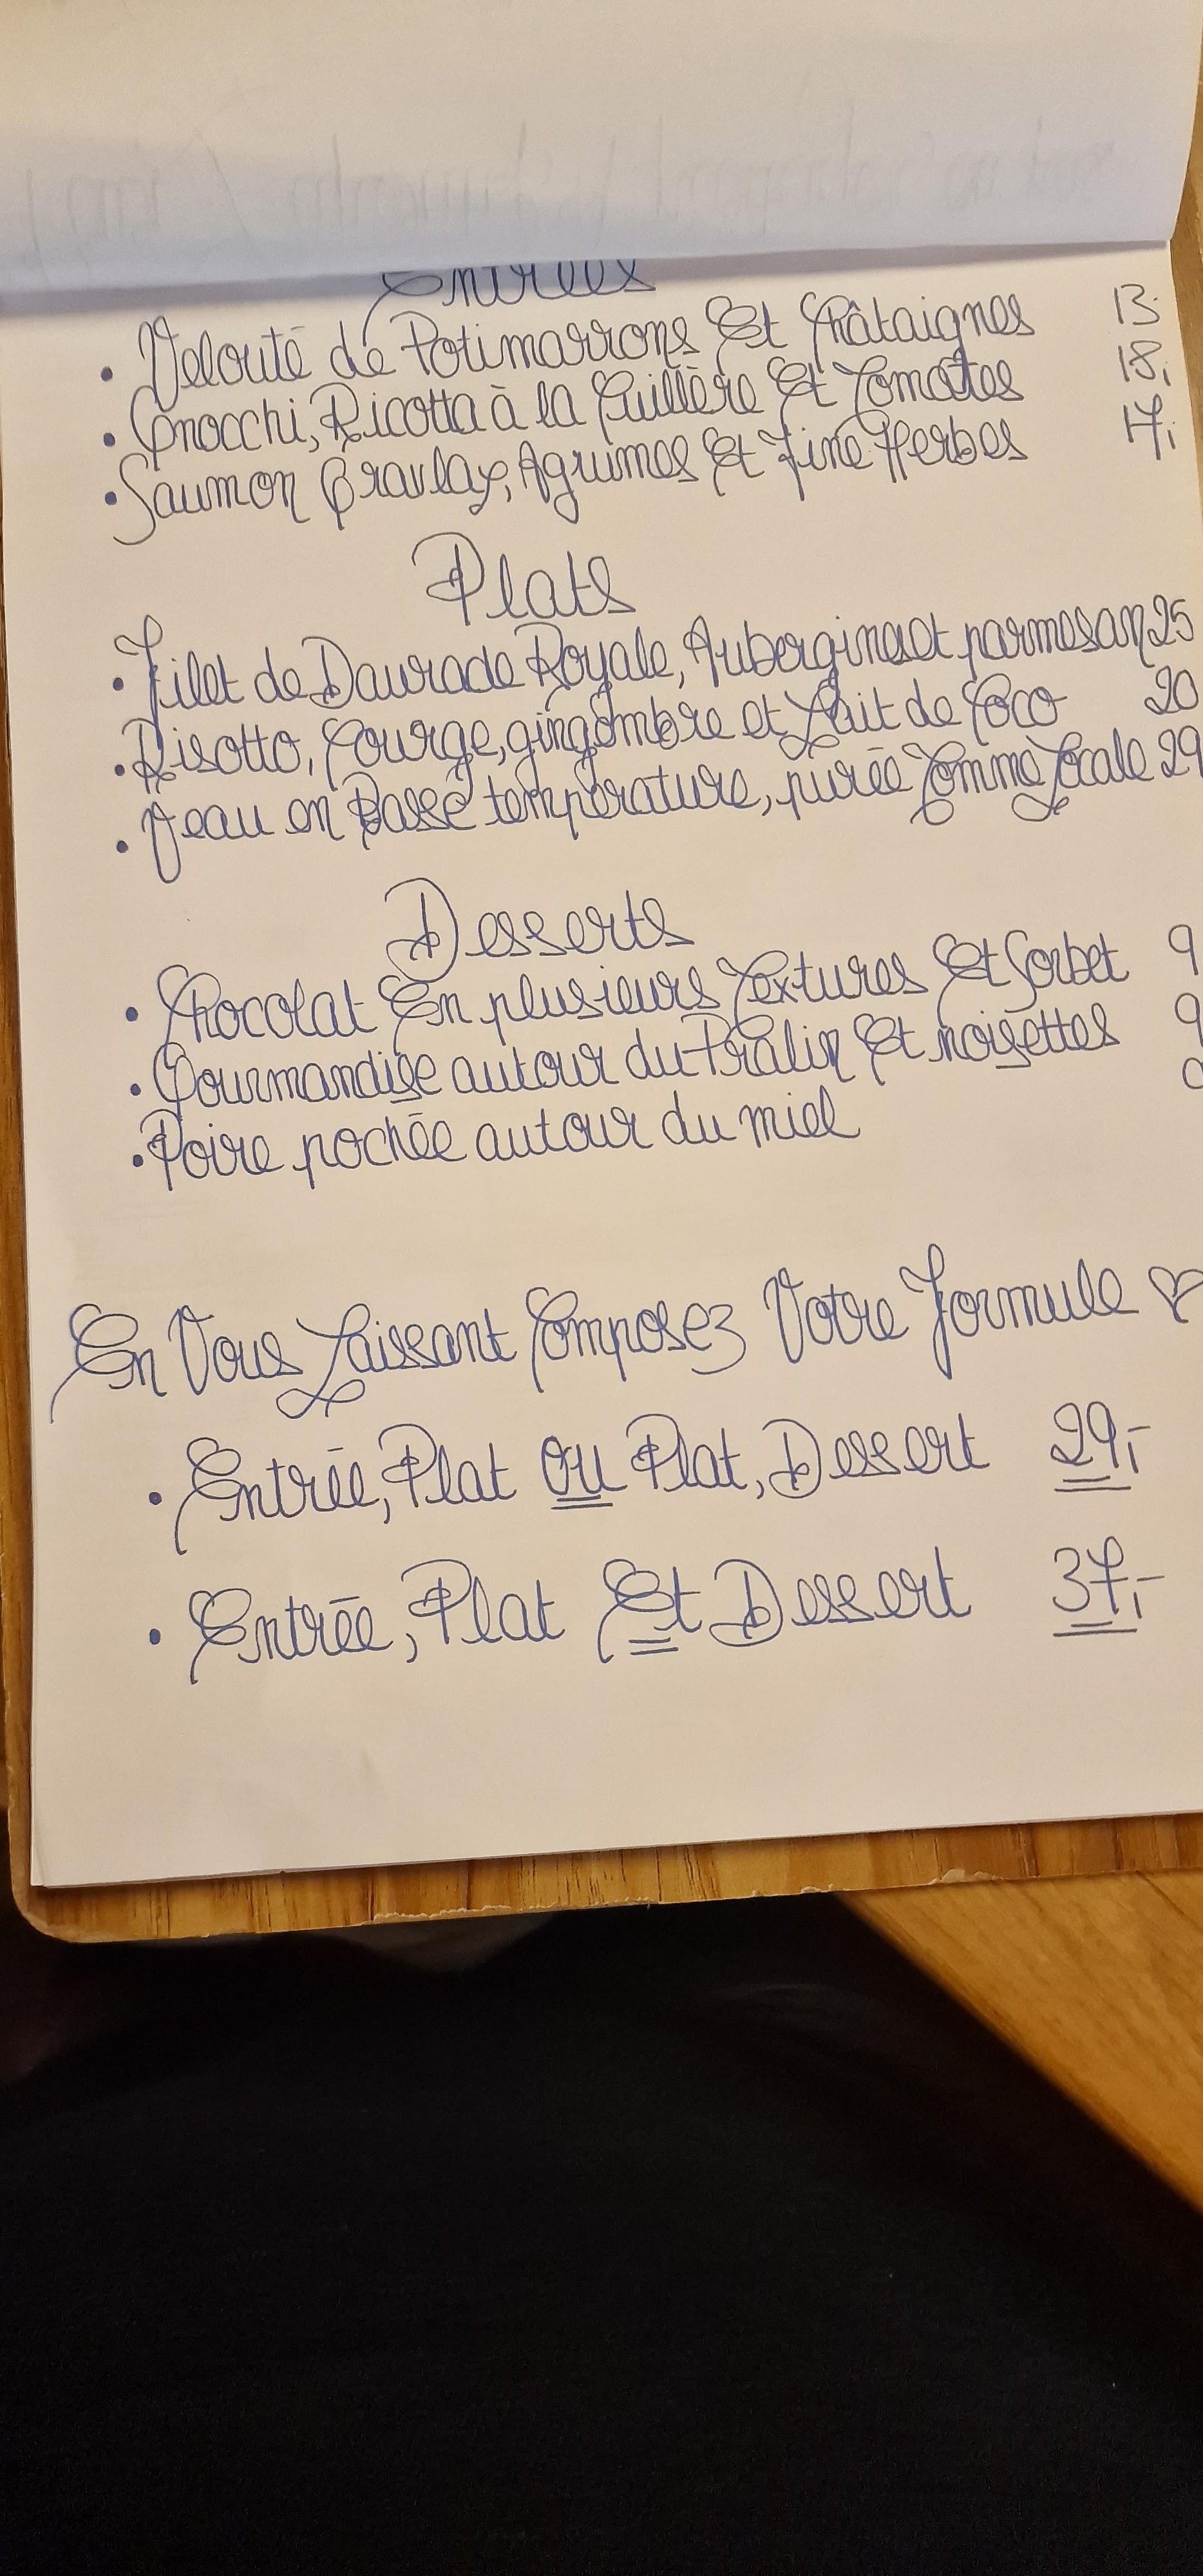 Entrées
• Velouté de Potimarrons Et Châtaignes 13.-
• Gnocchi, Ricotta à la Cuillère Et Tomates 18,-
• Saumon Gravlax, Agrumes Et Fine Herbes 17,-
Plats
• Filet de Daurade Royale, Aubergines et parmesan 25
• Risotto, Courge, gingembre et Lait de Coco 20
• Veau en Basse température, purée Pomme Locale 29
Desserts
• Chocolat En plusieurs Textures Et Sorbet 9
• Gourmandise autour du Pralin Et noisettes 9
• Poire pochée autour du miel
En Vous Laissant Composez Votre Formule ♡
• Entrée, Plat ou Plat, Dessert 29,-
• Entrée, Plat Et Dessert 37,-